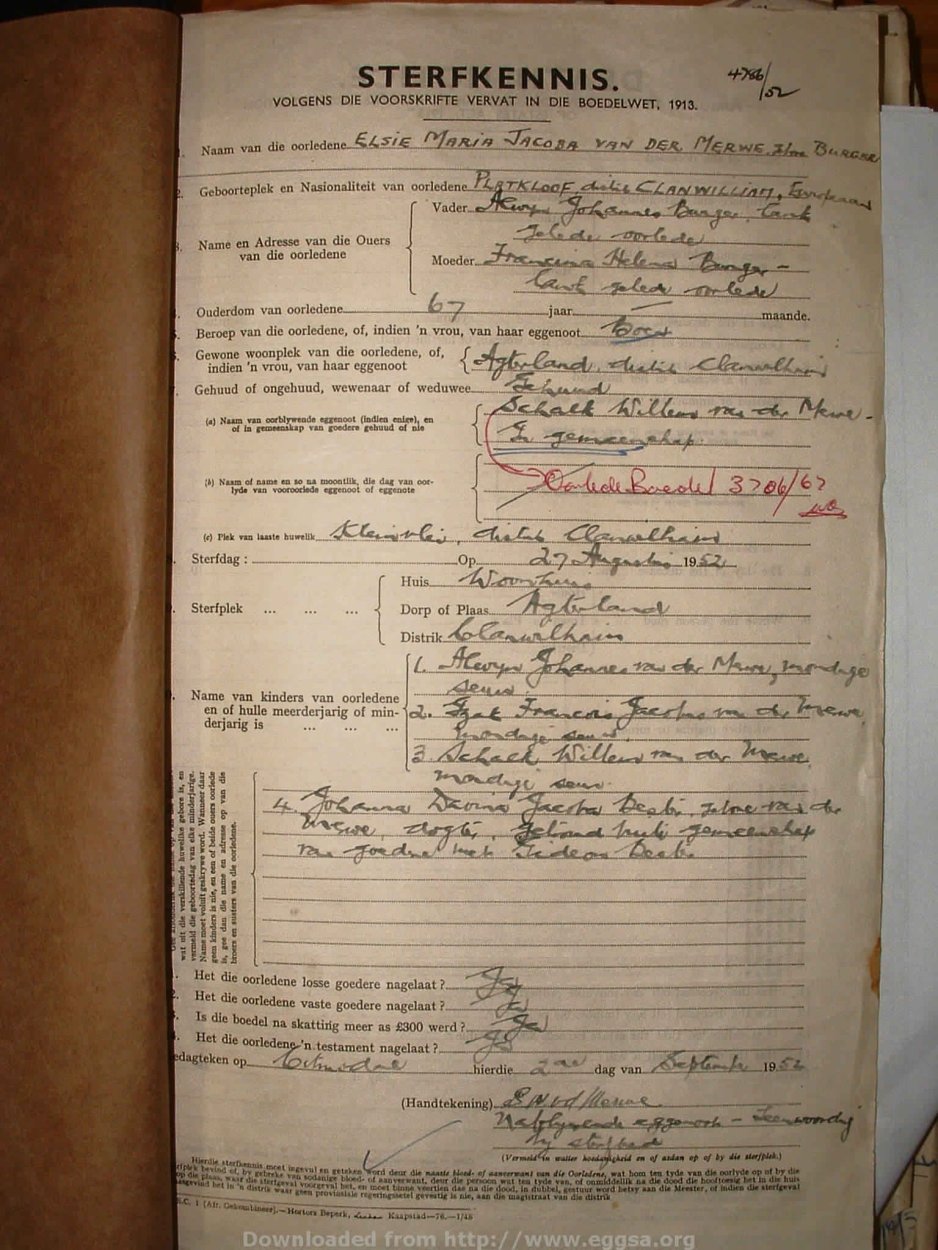 4786/52
STERFKENNIS.
VOLGENS DIE VOORSKRIFTE VERVAT IN DIE BOEDELWET, 1913.
1. Naam van die oorledene ELSIE MARIA JACOBA VAN DER MERWE, BURGER
2. Geboorteplek en Nasionaliteit van oorledene PLATKLOOF, CLANWILLIAM, European
3. Name en Adresse van die Ouers van die oorledene
Vader Alwyn Johannes Burger, lank
gelede oorlede
Moeder Francina Helena Burger –
lank gelede oorlede
Ouderdom van oorledene 67 jaar — maande.
Beroep van die oorledene, of, indien 'n vrou, van haar eggenoot Boer
Gewone woonplek van die oorledene, of,
indien 'n vrou, van haar eggenoot
Agterland, distrik Clanwilliam
Gehuud of ongehuud, wewenaar of weduwee Gehuud
(a) Naam van oorblywende eggenoot (indien enige), en
of in gemeenskap van goedere gehuud of nie
Schalk Willem van der Merwe –
In gemeenskap.
(b) Naam of name en so na moontlik, die dag van oor-
lyde van vooroorlede eggenoot of eggenote
Oorlede Boedel 3706/67
(c) Plek van laaste huwelik Kleinvlei, distrik Clanwilliam
Sterfdag : Op 27 Augustus 1952
Sterfplek ... ... ...
Huis Woonhuis
Dorp of Plaas Agterland
Distrik Clanwilliam
Name van kinders van oorledene
en of hulle meerderjarig of min-
derjarig is ... ... ...
1. Alwyn Johannes van der Merwe, mondige
seun
2. Izak Francois Jacobus van der Merwe
mondige seun
3. Schalk Willem van der Merwe,
mondige seun
wat uit die verskillende huwelike gebore is, en
vermeld die geboortedag van elke minderjarige.
Name moet voluit geskrywe word. Wanneer daar
geen kinders is nie, en een of beide ouers oorlede
is, gee dan die name en adresse op van die
broers en susters van die oorledene.
4. Johanna Jacoba gebore van der
Merwe, dogter, getroud gemeenskap
van goedere met Gideon
Het die oorledene losse goedere nagelaat ? Ja
Het die oorledene vaste goedere nagelaat ? Ja
Is die boedel na skatting meer as £300 werd ? Ja
Het die oorledene 'n testament nagelaat ? Ja
edagteken op Citrusdal hierdie 2de dag van September 1952
(Handtekening) S W vd Merwe
Nablywende eggenoot – Teenwoordig
by sterfbed
(Vermeld in watter hoedanigheid en of asdan op of by die sterfplek.)
Hierdie sterfkennis moet ingevul en geteken word deur die naaste bloed- of aanverwant van die Oorledene, wat hom ten tyde van die oorlyde op of by die
sterfplek bevind of, by gebreke van sodanige bloed- of aanverwant, deur die persoon wat ten tyde van, of onmiddellik na die dood die hooftoesig het in die huis
op die plaas, waar die sterfgeval voorgeval het, en moet binne veertien dae na die dood, in dubbel, gestuur word hetsy aan die Meester, of indien die sterfgeval
plaasgevind het in 'n distrik waar geen provinsiale regeringsetel gevestig is nie, aan die magistraat van die distrik
—Hortors Beperk, Kaapstad—76.—1/48
Downloaded from http://www.eggsa.org